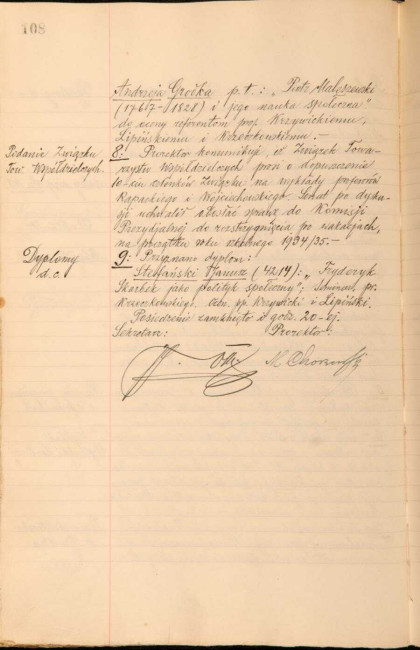 108
Andrzeja Grodka p. t.: „Piotr Maleszewski
(1767-1828) i jego nauka społeczna"
do oceny referentom prof. Krzywickiemu,
Lipińskiemu i Krzeczkowskiemu.—
Podanie Związku
Tow. Współdzielczych.
8: Prorektor komunikuje, iż Związek Towa-
rzystw Współdzielczych prosi o dopuszczenie
10-ciu członków Związku na wykłady profesorów
Rapackiego i Wojciechowskiego. Senat po dysku-
sji uchwalił odesłać sprawę do Komisji
Prezydjalnej do rozstrzygnięcia po wakacjach,
na początku roku szkolnego 1934/35.—
Dyplomy
d. c.
9: Przyznano dyplom:
Stefański Janusz (4214): „Fryderyk
Skarbek jako polityk społeczny"; Seminarjum pr.
Krzeczkowskiego. Ocen. pp. Krzywicki i Lipiński.
Posiedzenie zamknięto o godz. 20-ej.
Sekretarz: Prorektor: